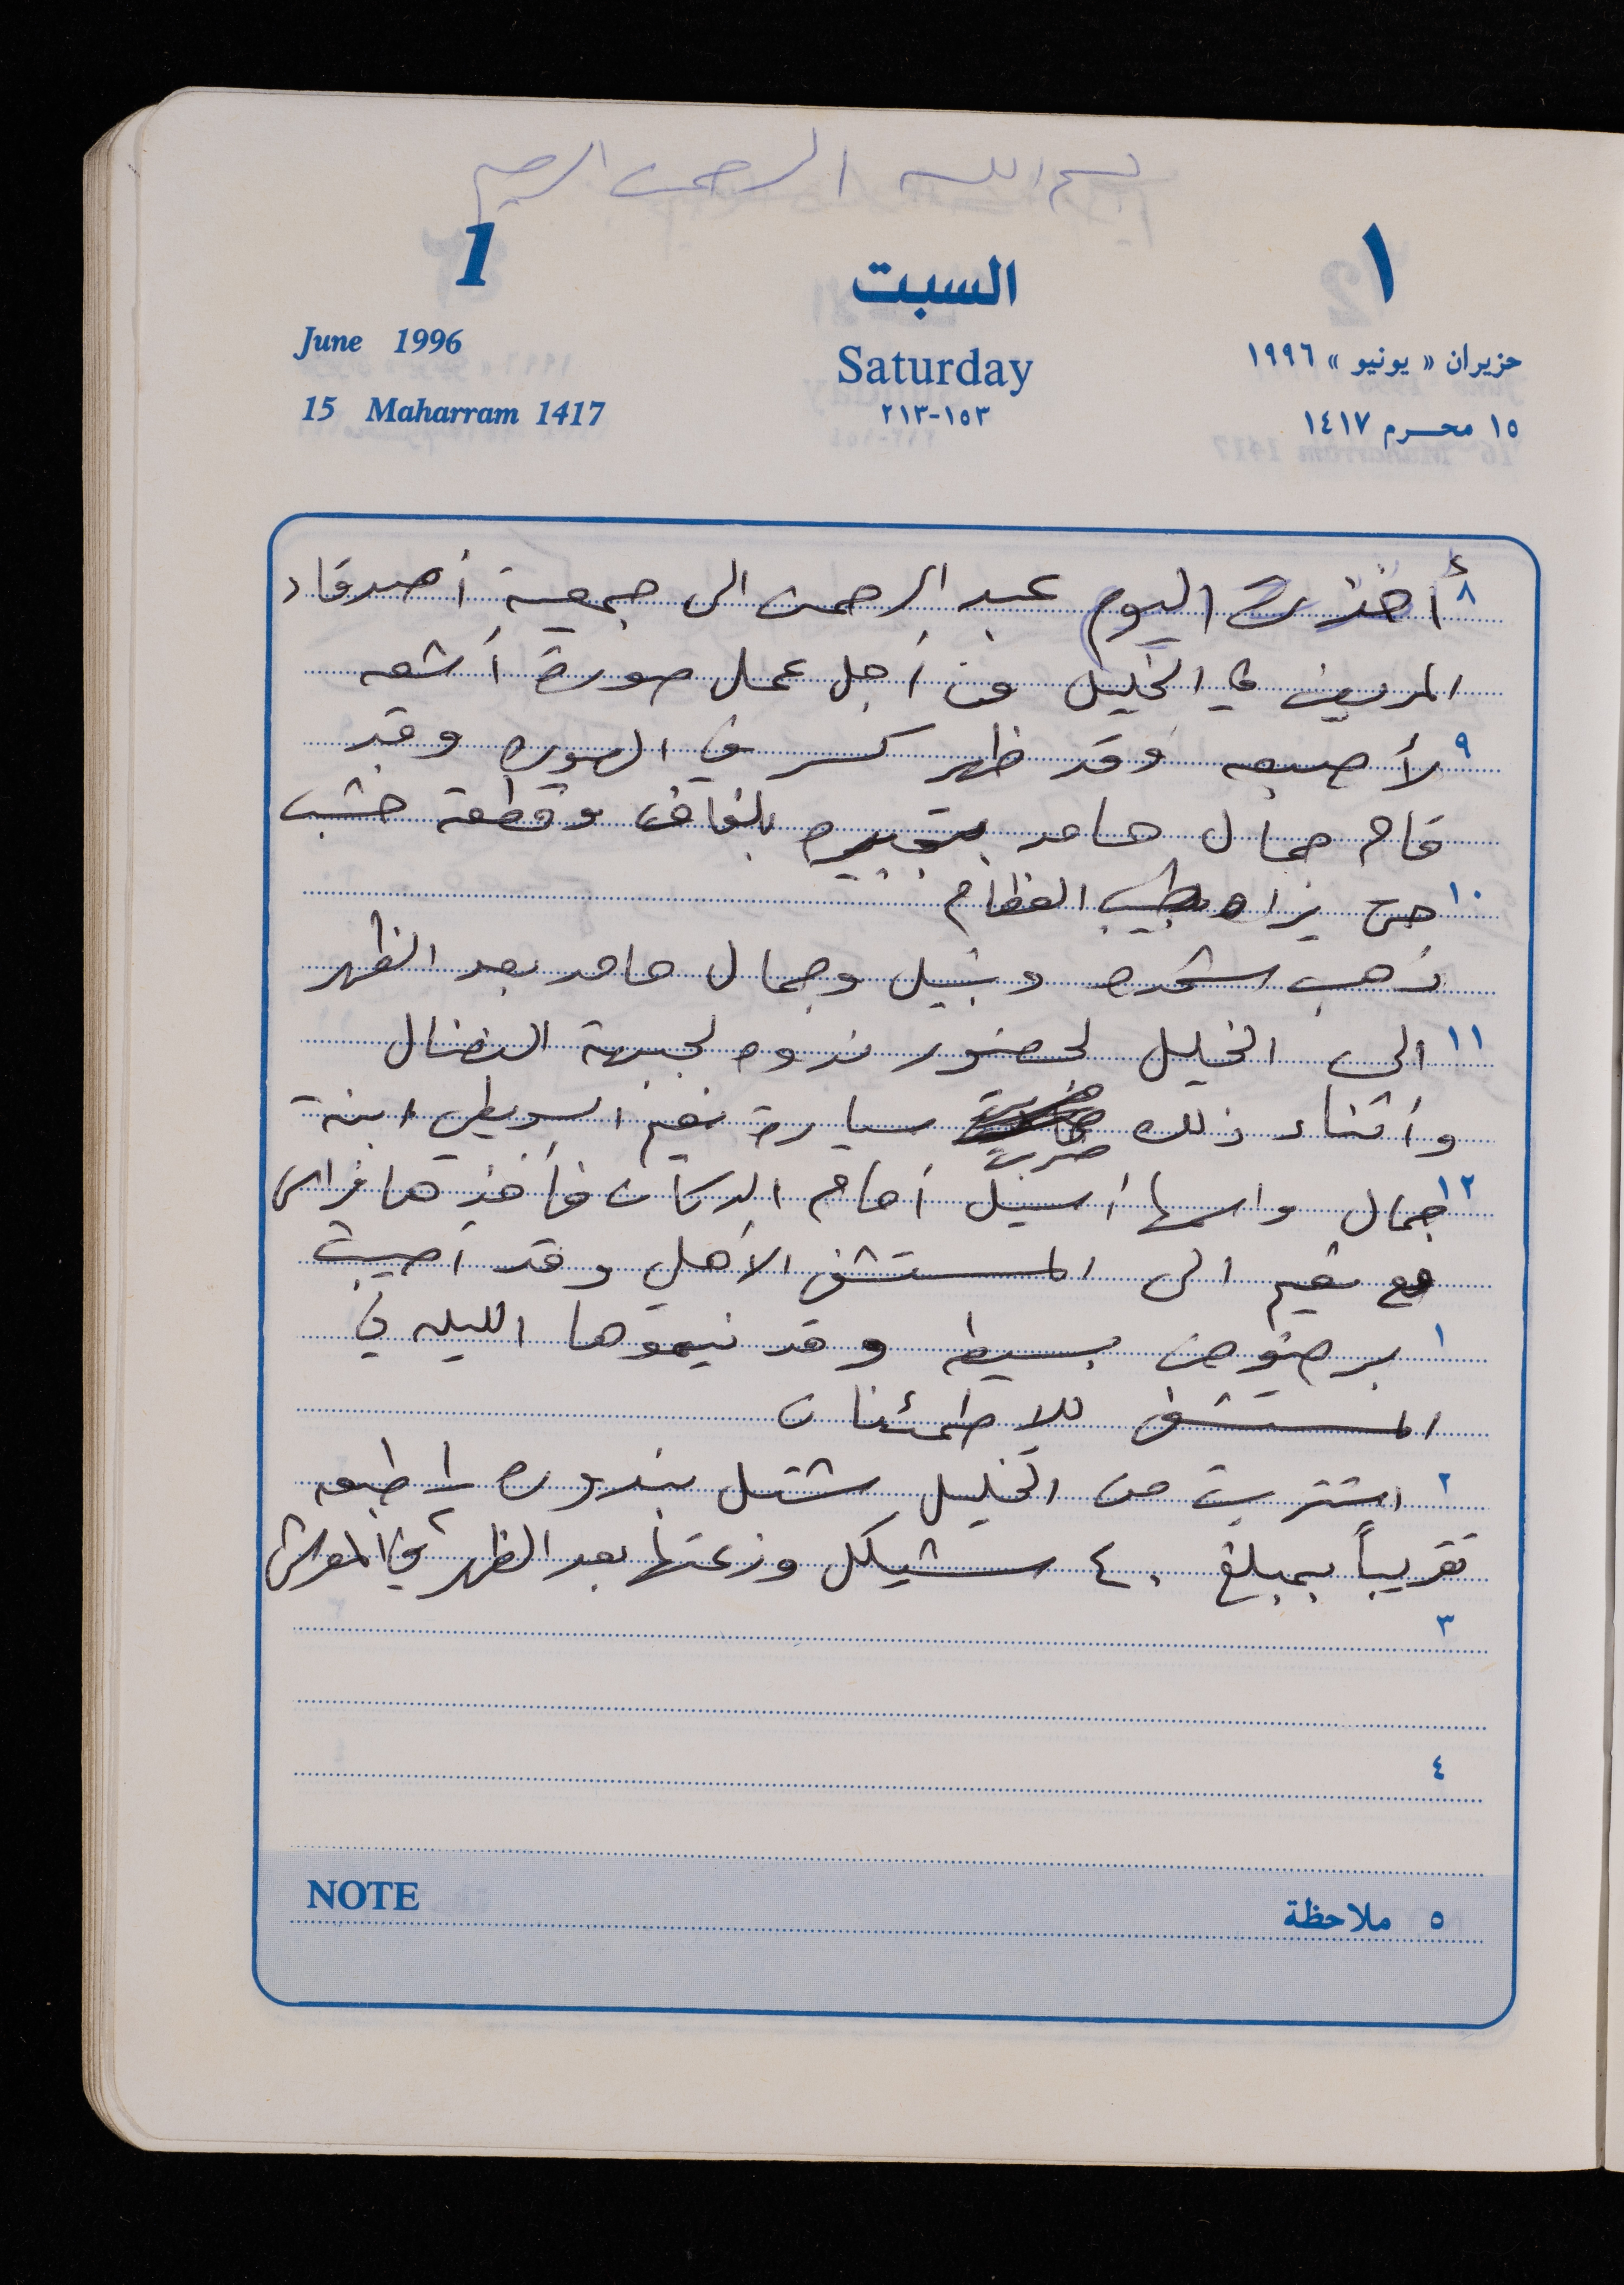 بسم الله الرحمن الرحيم
1 السبت ١
June 1996 Saturday حزيران « يونيو » ١٩٩٦
15 Maharram 1417 ١٥٣-٢١٣ ١٥ محرم ١٤١٧
٨ أخذت اليوم عبد الرحمن الى جمعية أصدقاء
المريض في الخليل من أجل عمل صورة أشعه
٩ لأصبعه وقد ظهر كسر في الصوره وقد
قام جمال حامد بتجبيره بلفاف وقطعة خشب
١٠ حتى يراه طبيب العظام
ذهب شحده ونبيل وجمال حامد بعد الظهر
١١ الى الخليل لحضور ندوه لجبهة النضال
وأثناء ذلك ضربت سيارة نعيم السويطي ابنة
١٢ جمال واسمها أسيل أمام الدكان فأخذها فراس
مع نعيم الى المستشفى الأهلي وقد أصيبت
١ برضوض بسيطه وقد نيموها الليله في
المستشفى للاطمئنان
٢ اشتريت من الخليل شتل بندوره طبعه
تقريباً بمبلغ ٤٠ شيكل وزعتها بعد الظهر في
٣
٤
NOTE ٥ ملاحظة